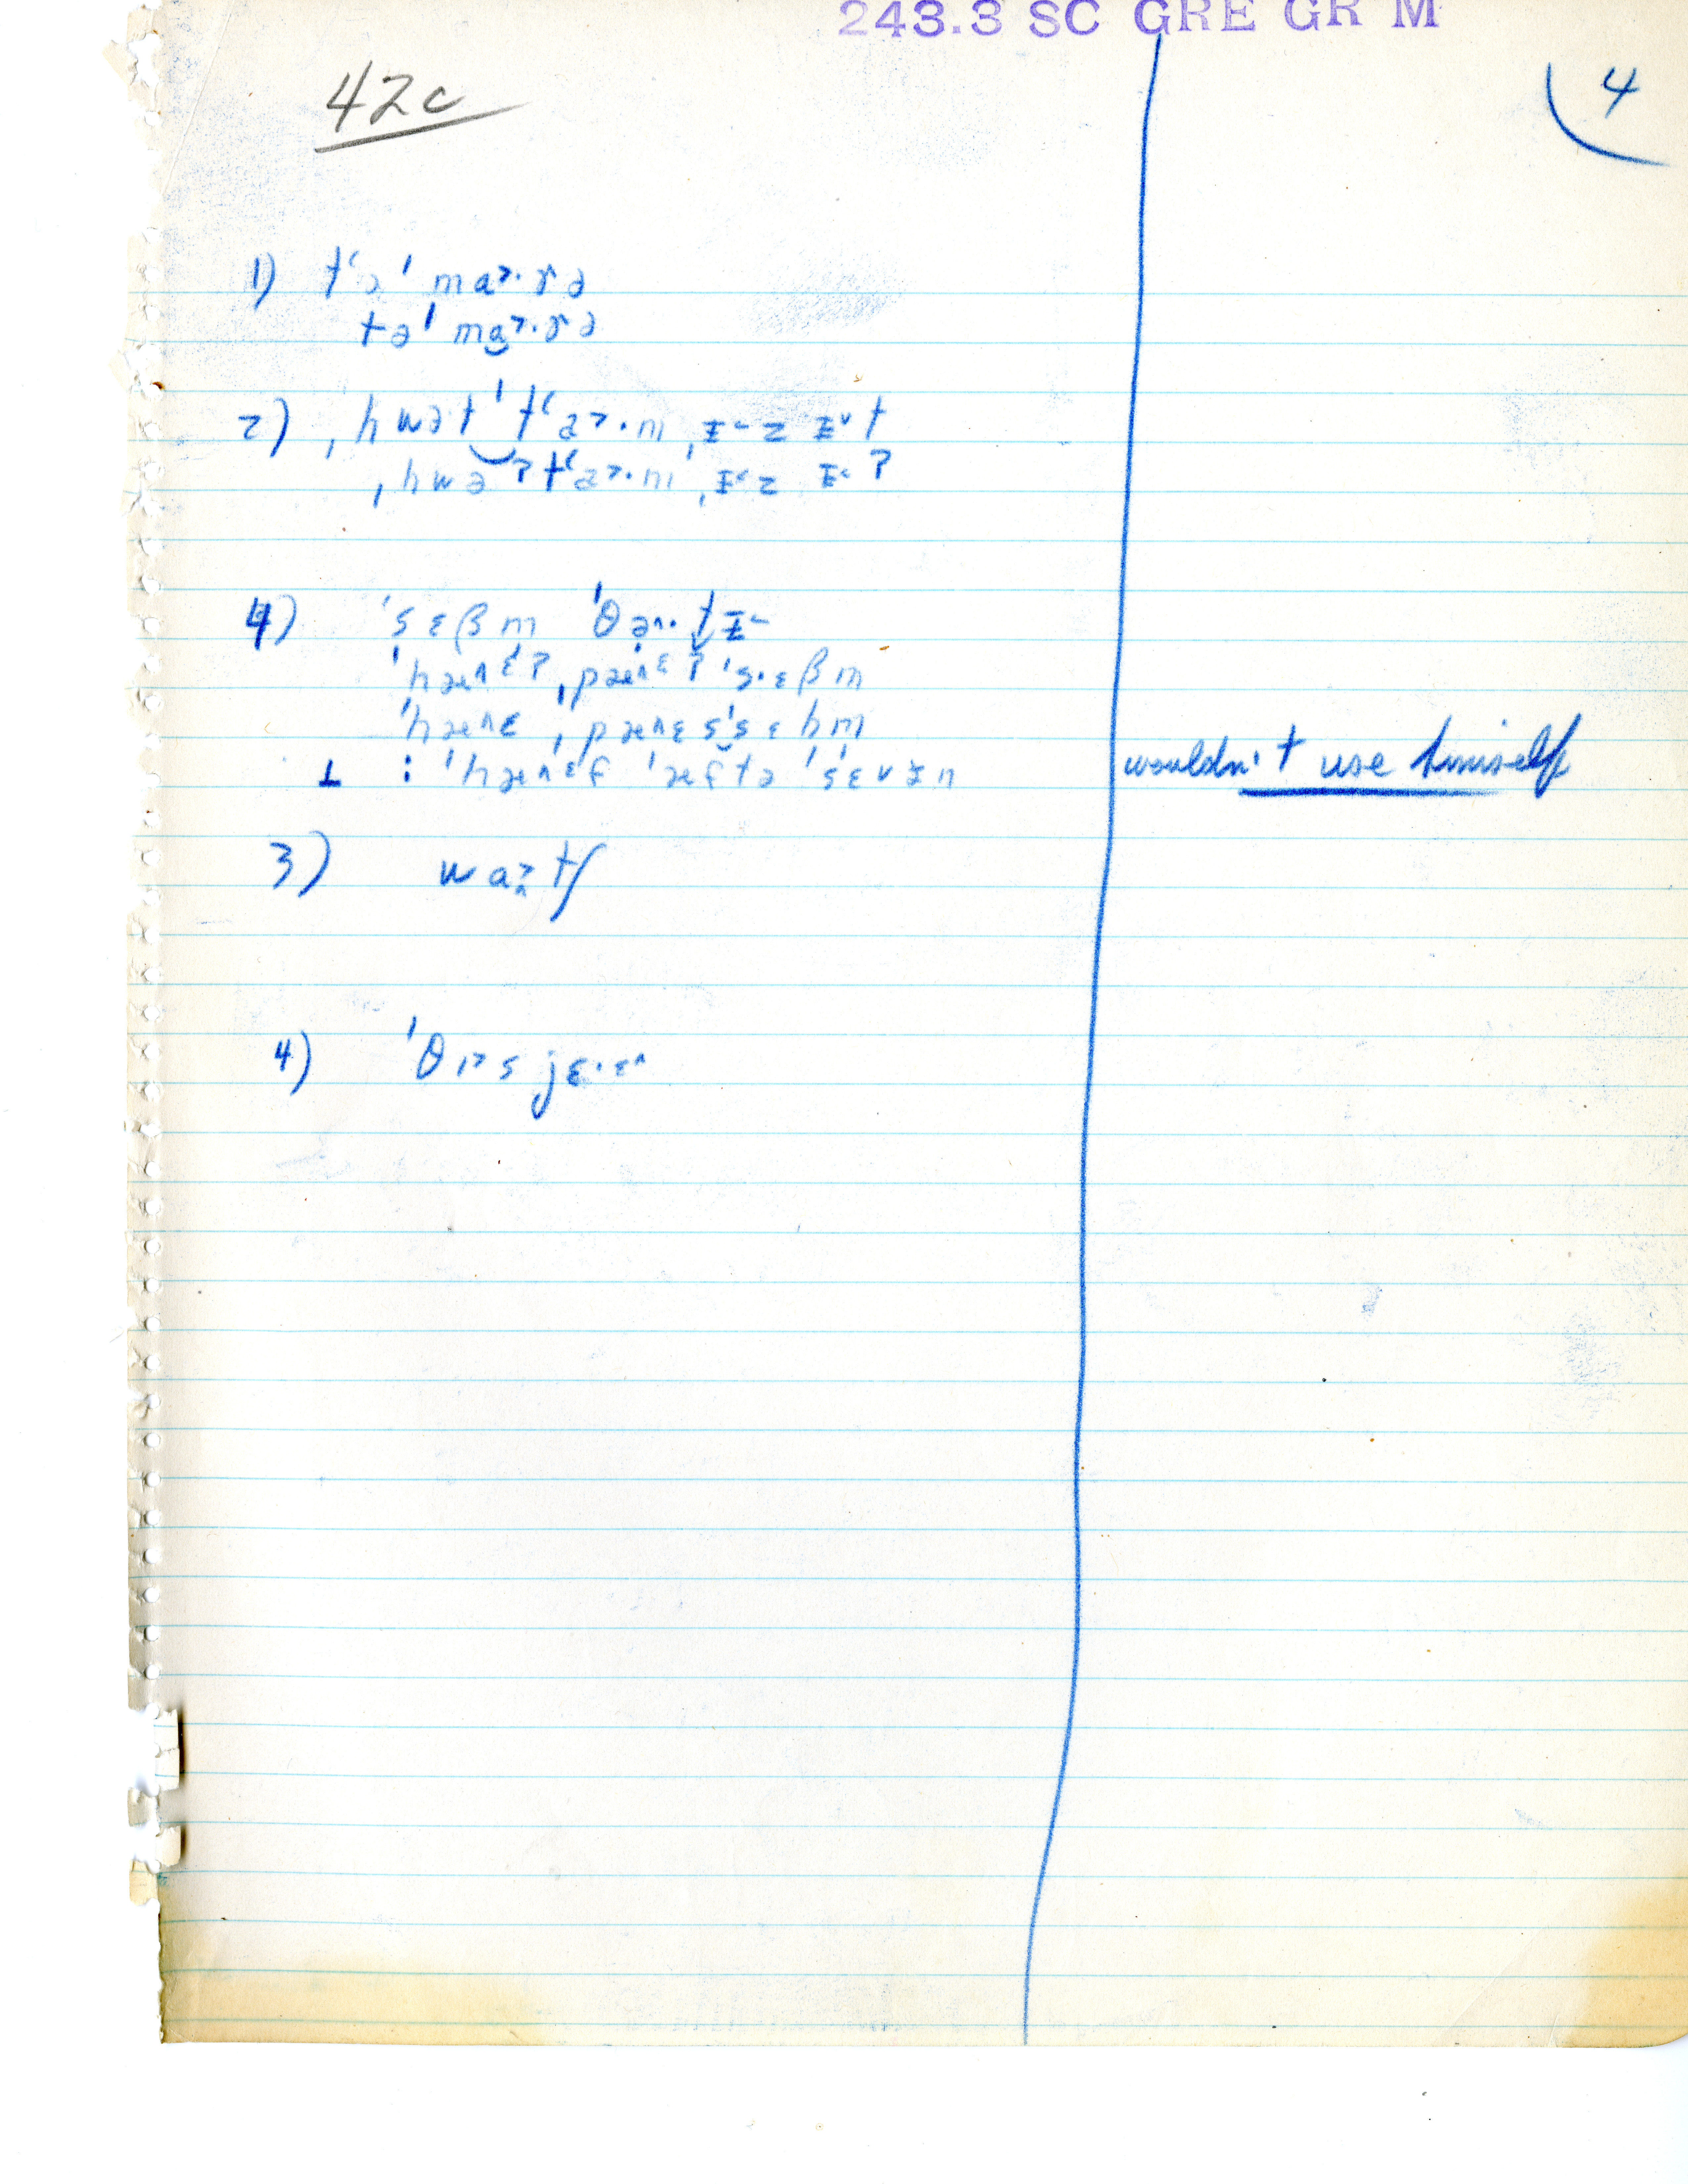 243.3 SC GRE GR M
42c
4
1) tʻə ˈmɑ˃·rə
tə ˈmɑ˃·rə
2) ˌhwət ˈtʻɑ˃·m ˌɪ˂z ɪ˅t
ˌhwə ʔtʻɑ˃·m ˌɪ˂z ɪ˂ʔ
4) ˈsɛβm ˈθə^·tɪ˂
ˈhæ^ɛʔ ˌpæ^ɛʔ ˈs·ɛβm
ˈhæ^ɛ ˌpæ^ɛs ˈsɛbm
⊥ : ˈhæ^ɛf ˈæftə ˈsɛvɪn
wouldn't use himself
3) wɑ˃tʃ
4) ˈθɪ˃s jɛ·ɛ^